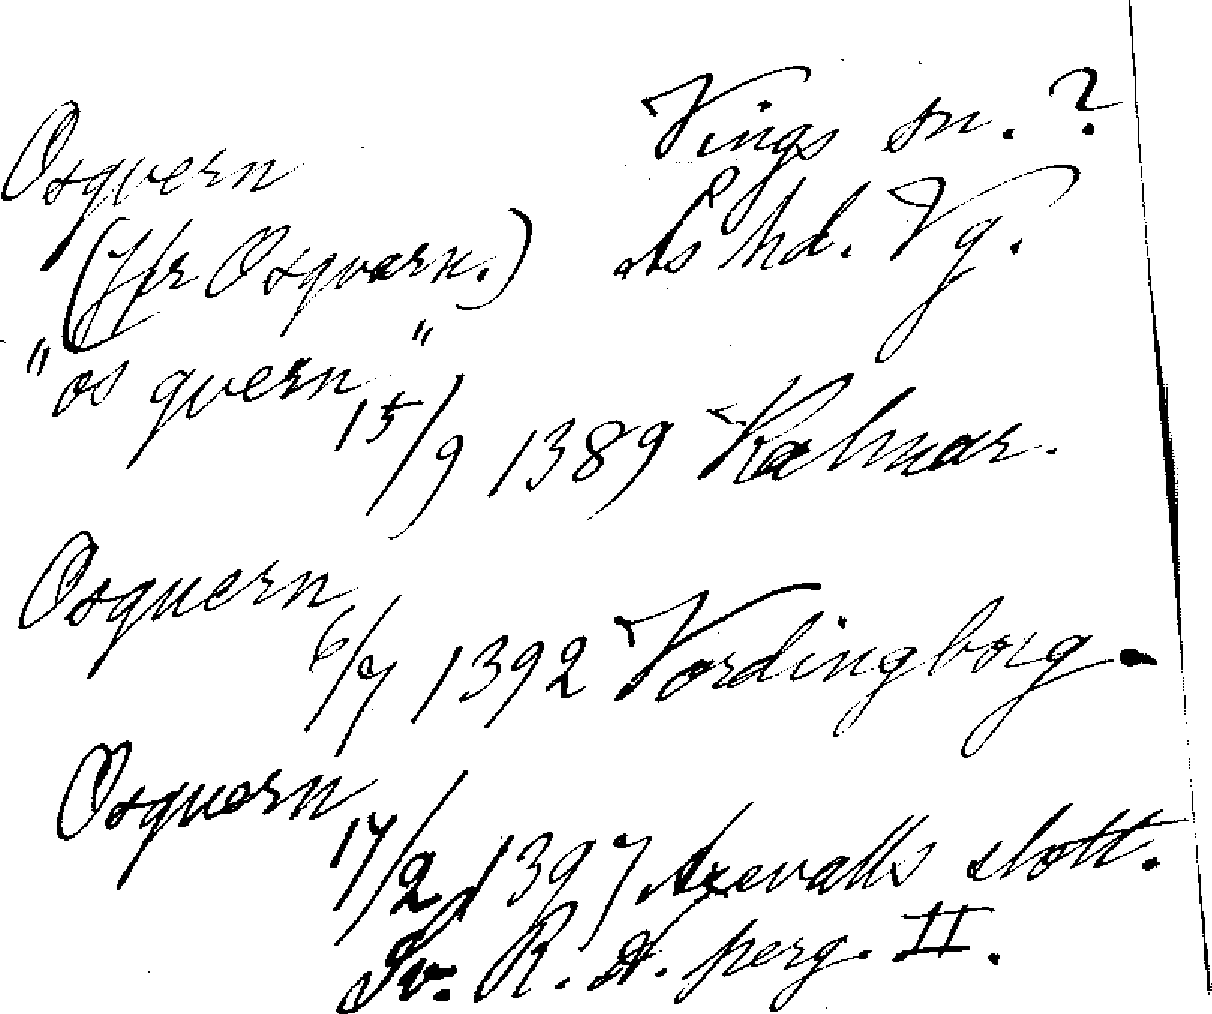 Osquern Vings sn. ?
(Jfr Osquarn.) Ås hd. Vg.
"os quern"
15/9 1389 Kalmar.
Osquern
6/7 1392 Vordingborg.
Osquern
17/2 1397 Axevalls slott.
Sv. R. A. perg. II.